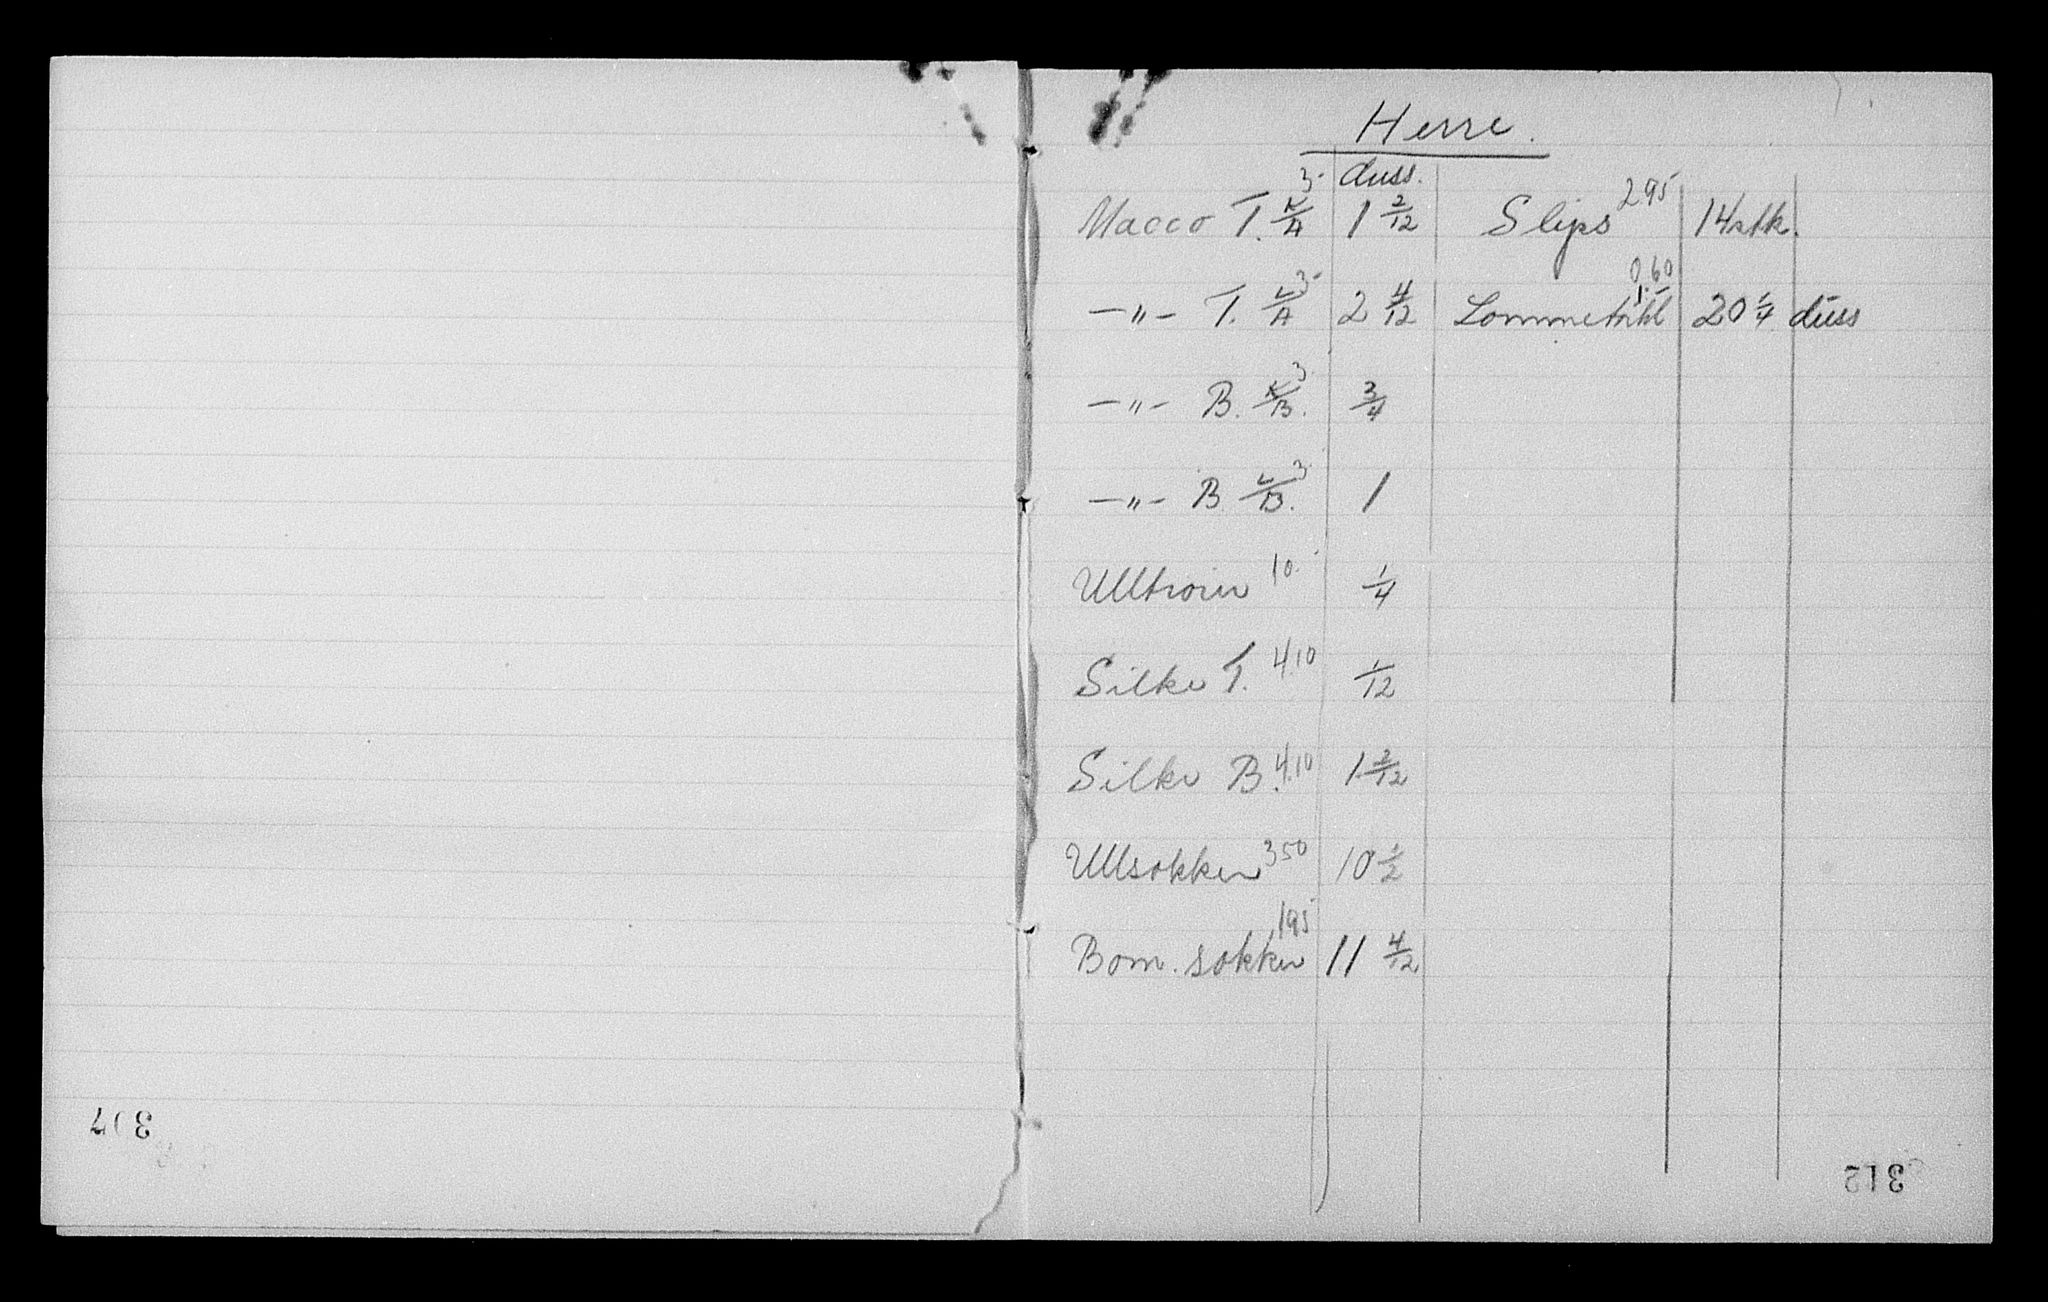 Herre.
duss.
Macco T. K/A 3- 1 2/12 Slips 2.95 14 stk.
—„— T. L/A 3- 2 4/12 Lommetrkl 0.60 1.- 20 1/4 duss
—„— B. K/B. 3 3/4
—„— B. L/B. 3- 1
Ulltroier 10.- 1/4
Silke T. 4.10 1/12
Silke B. 4.10 1 2/12
Ullsokker 350 10 1/2
Bom. sokker 195 11 4/12
307
312